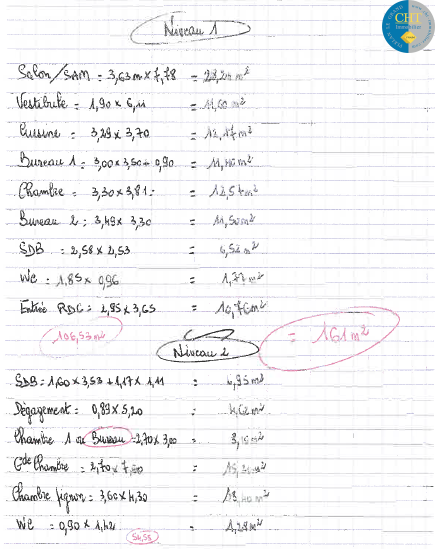 CHT
Niveau 1
Salon/SAM = 3,63m x 7,78 = 28,24 m²
Vestibule = 1,90 x 6,11 = 11,60 m²
Cuisine = 3,29 x 3,70 = 12,17 m²
Bureau 1 = 3,00 x 3,50 + 0,90 = 11,40 m²
Chambre = 3,30 x 3,81 = 12,57 m²
Bureau 2 = 3,49 x 3,30 = 11,50 m²
SDB = 2,58 x 2,53 = 6,52 m²
WC = 1,85 x 0,96 = 1,77 m²
Entrée RDC = 2,95 x 3,65 = 10,76 m²
106,53 m² = 161 m²
Niveau 2
SDB = 1,60 x 3,53 + 1,17 x 1,11 = 6,95 m²
Dégagement = 0,89 x 5,20 = 4,62 m²
Chambre 1 ou Bureau = 2,70 x 3,00 = 8,10 m²
Gde Chambre = 2,70 x = m²
Chambre pignon = 3,60 x 4,30 = m²
WC = 0,90 x 1,42 = 1,28 m²
54,55